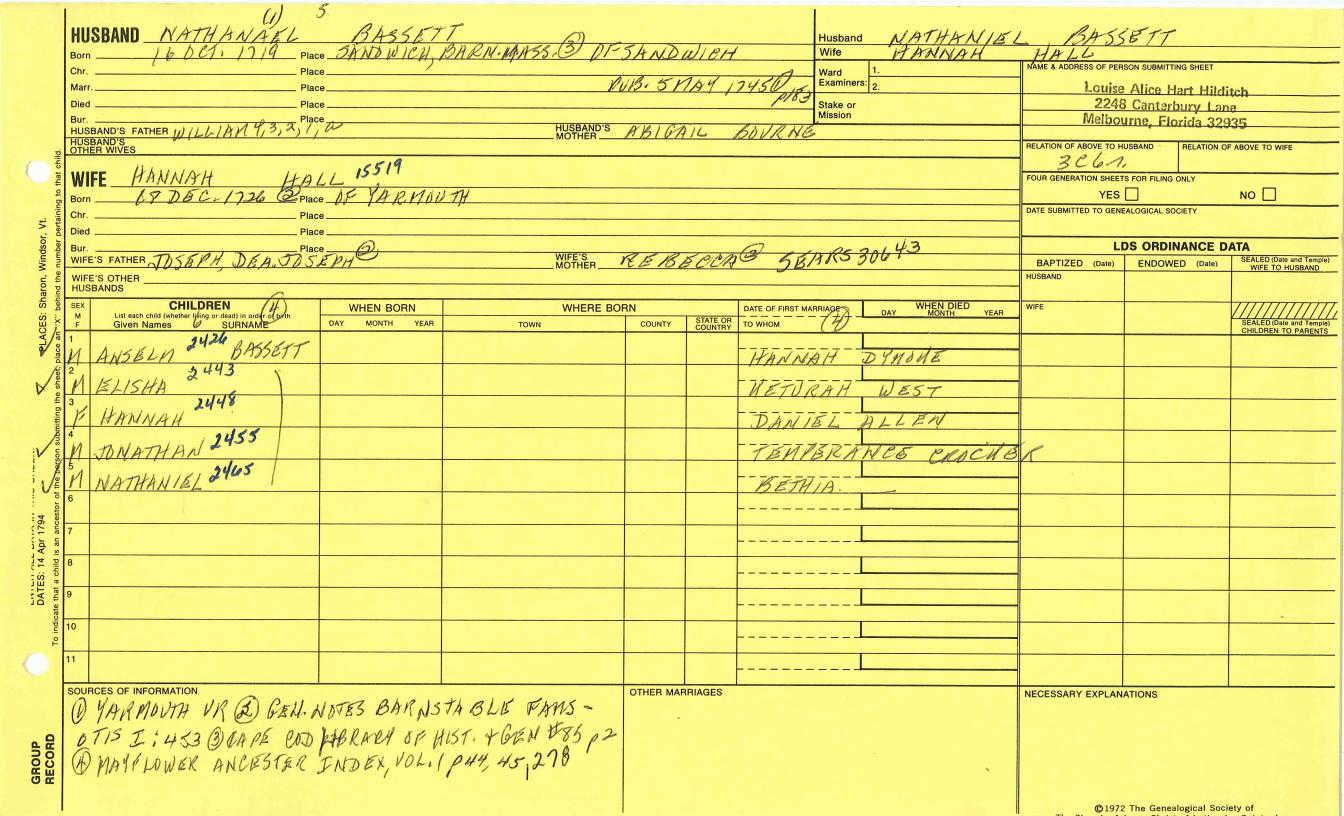 (1) 5
HUSBAND NATHANAEL BASSETT
Born 16 OCT. 1719 Place SANDWICH, BARN. MASS. ③ OF SANDWICH
Chr. Place
Marr. Place PUB. 5 MAY 1745 ① p183
Died Place
Bur. Place
HUSBAND'S FATHER WILLIAM 4,3,2,1,a HUSBAND'S MOTHER ABIGAIL BOURNE
HUSBAND'S OTHER WIVES
WIFE HANNAH HALL 15519
Born DEC. 1726 ② Place OF YARMOUTH
Chr. Place
Died Place
Bur. Place
WIFE'S FATHER JOSEPH, DEA. JOSEPH ② WIFE'S MOTHER REBECCA ② SEARS 30643
WIFE'S OTHER HUSBANDS
Husband NATHANIEL BASSETT
Wife HANNAH HALL
Ward Examiners: 1.
2.
Stake or Mission
NAME & ADDRESS OF PERSON SUBMITTING SHEET
Louise Alice Hart Hilditch
2248 Canterbury Lane
Melbourne, Florida 32935
RELATION OF ABOVE TO HUSBAND RELATION OF ABOVE TO WIFE
3C6r.
FOUR GENERATION SHEETS FOR FILING ONLY
YES NO
DATE SUBMITTED TO GENEALOGICAL SOCIETY
LDS ORDINANCE DATA
BAPTIZED (Date) ENDOWED (Date) SEALED (Date and Temple) WIFE TO HUSBAND
HUSBAND
WIFE
SEALED (Date and Temple) CHILDREN TO PARENTS
SEX M F
CHILDREN ④
List each child (whether living or dead) in order of birth
Given Names 6 SURNAME
WHEN BORN
DAY MONTH YEAR
WHERE BORN
TOWN COUNTY STATE OR COUNTRY
DATE OF FIRST MARRIAGE
TO WHOM ④
WHEN DIED
DAY MONTH YEAR
1 M ANSELM 2426 BASSETT HANNAH DYMOKE
2 M ELISHA 2443 KETURAH WEST
3 F HANNAH 2448 DANIEL ALLEN
4 M JONATHAN 2455 TEMPERANCE CROCKER
5 M NATHANIEL 2465 BETHIA
6
7
8
9
10
11
SOURCES OF INFORMATION
① YARMOUTH VR ② GEN. NOTES BARNSTABLE FAMS -
OTIS I: 453 ③ CAPE COD LIBRARY OF HIST. & GEN #85 p2
④ MAYFLOWER ANCESTER INDEX, VOL. 1 p44, 45, 278
OTHER MARRIAGES
NECESSARY EXPLANATIONS
©1972 The Genealogical Society of
PLACES: Sharon, Windsor, Vt.
DATES: 14 Apr 1794
To indicate that a child is an ancestor of the person submitting the sheet, place an "X" behind the number pertaining to that child.
GROUP RECORD